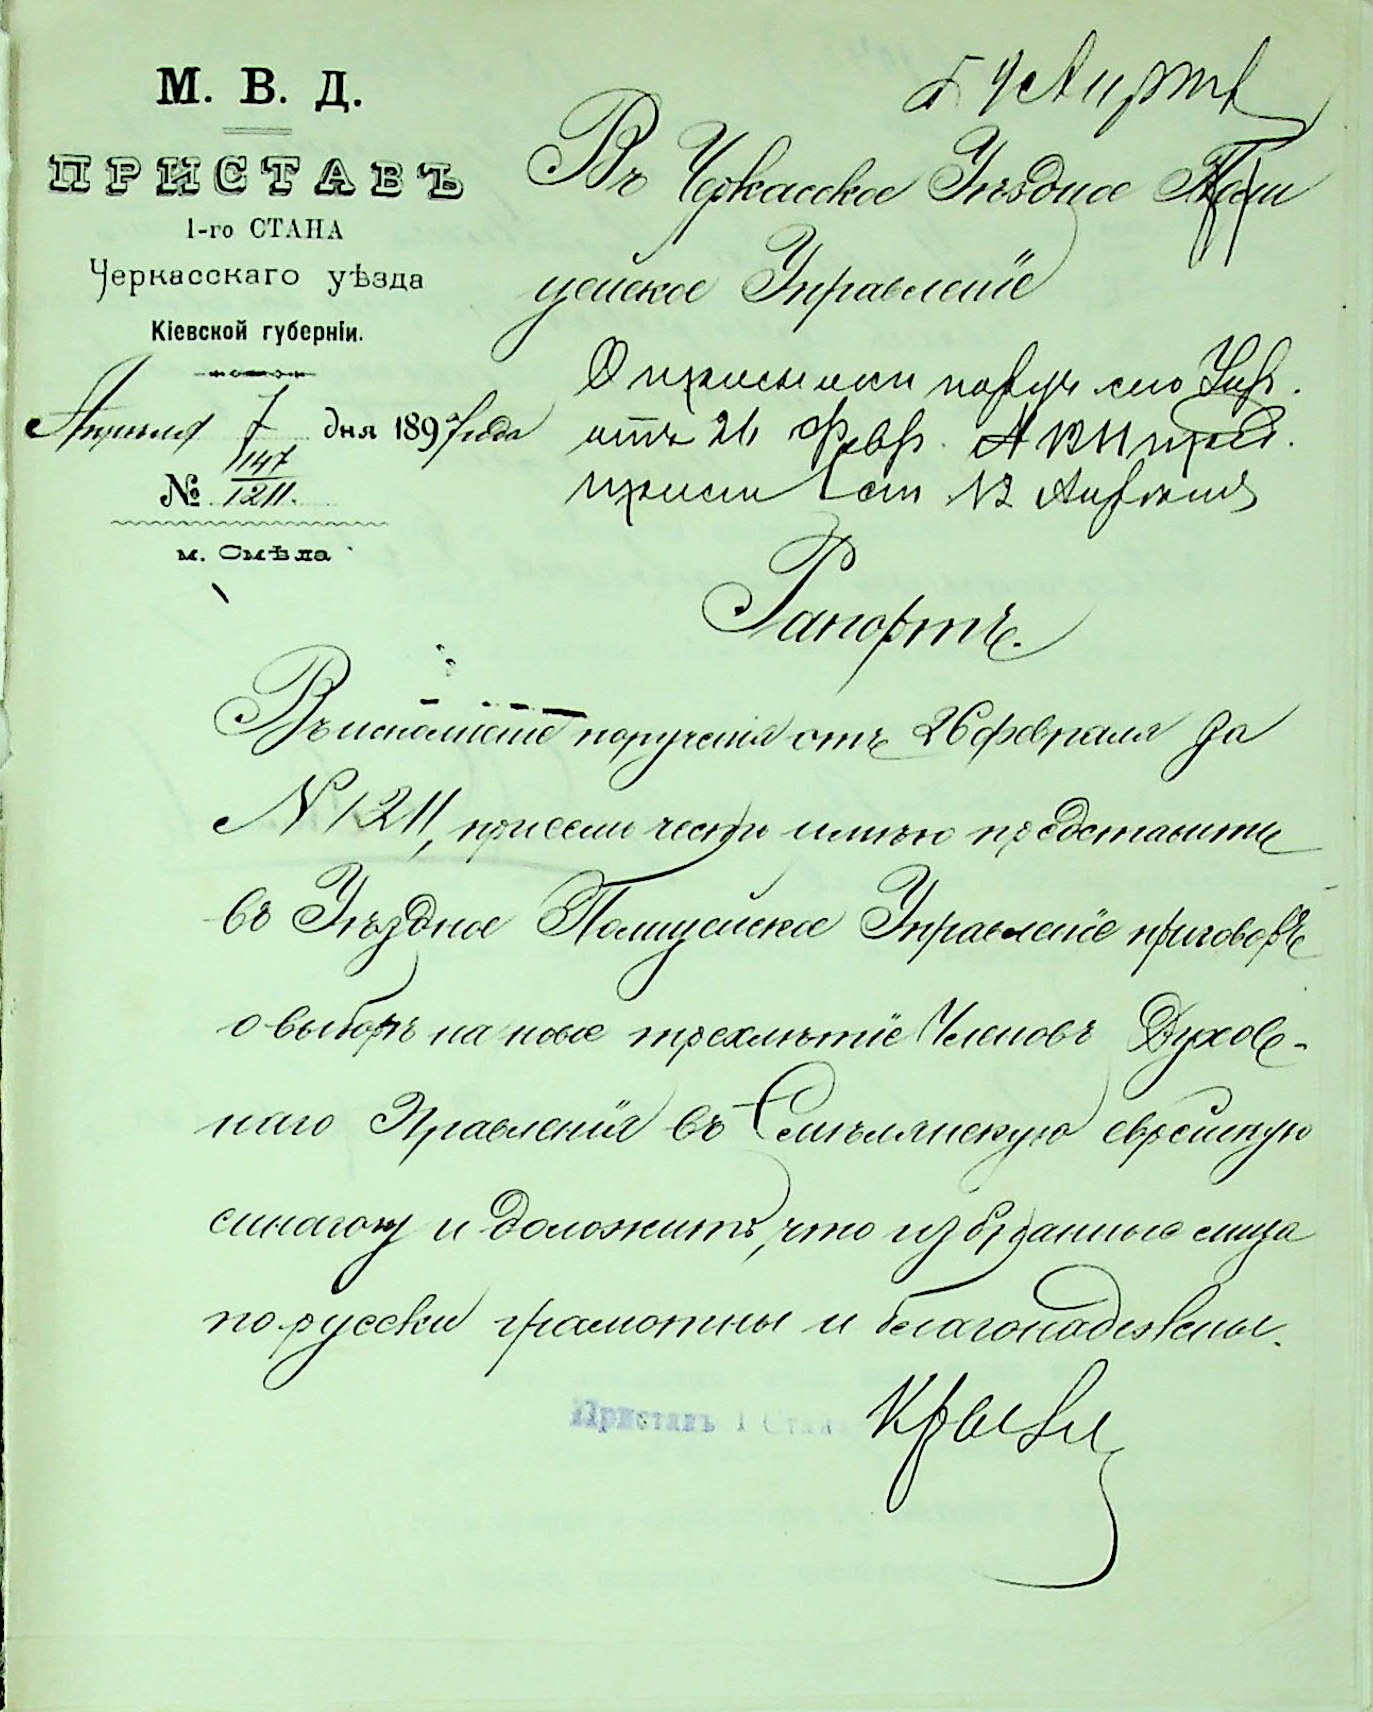 М. В. Д.
ПРИСТАВЪ
1-го СТАНА
Черкасскаго уѣзда
Кіевской губерніи.
Апрѣля 7 дня 1897 года
№ 147
1211.
м. Смѣла
Въ Черкасское Уѣздное Поли
цейское Управленіе
отъ 26 Февр.
12 Апрѣля
Рапортъ.
Въ исполненіе порученія отъ 26 февраля за
N 1211, при семъ честь имѣю представить
въ Уѣздное Полицейское Управленіе приговоръ
о выборѣ на новое трехлѣтіе Членовъ Духов-
наго Правленія въ Смѣлянскую еврейскую
синагогу и доложить, что избранные лица
по русски грамотны и благонадежны.
Приставъ 1 Стана